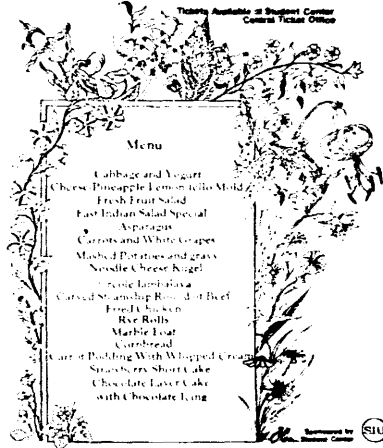 Tickets Available at Student Center
Central Ticket Office
Menu
Cabbage and Yogurt
Cheese-Pineapple Lemon Jello Mold
Fresh Fruit Salad
East Indian Salad Special
Asparagus
Carrots and White Grapes
Mashed Potatoes and gravy
Noodle Cheese Kugel
Creole Jambalaya
Carved Steamship Round of Beef
Fried Chicken
Rye Rolls
Marble Loaf
Cornbread
Carrot Pudding With Whipped Cream
Strawberry Short Cake
Chocolate Layer Cake
with Chocolate Icing
Sponsored by
Student Center
SIU